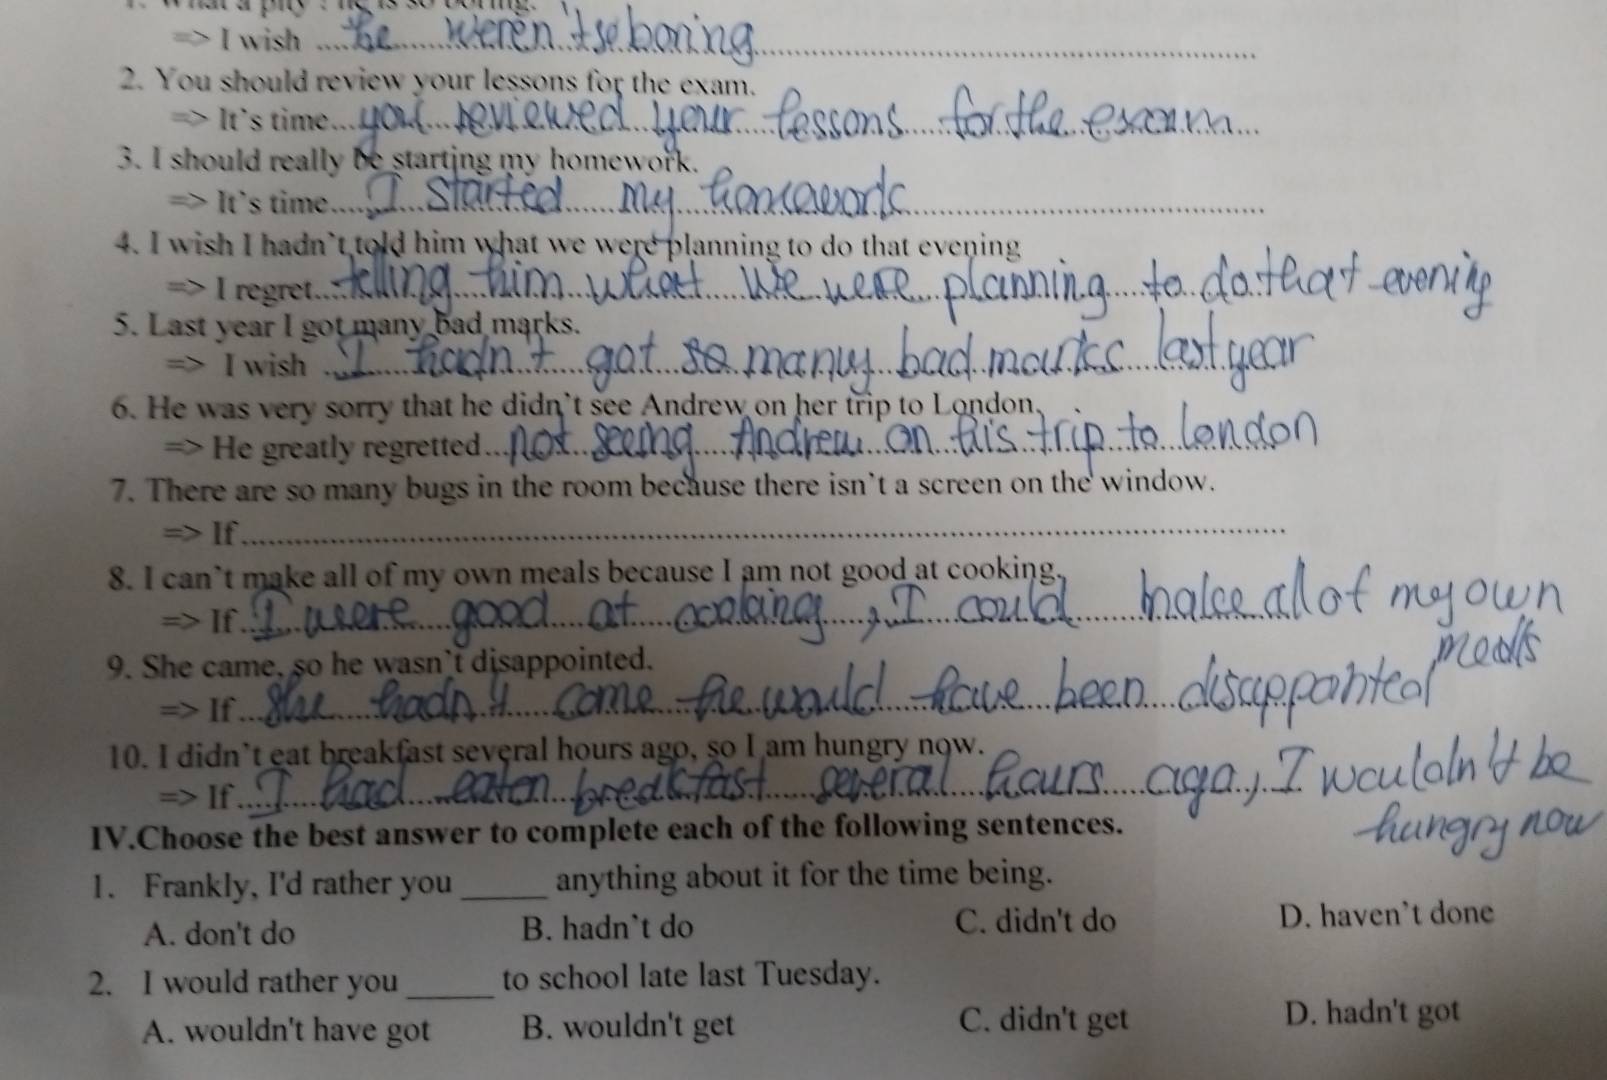 1. What a pity ! he is so boring.
=> I wish ....he......weren't so boring.......
2. You should review your lessons for the exam.
=> It's time...you...reviewed..your....lessons.....for.the..exam...
3. I should really be starting my homework.
=> It's time.....I...started.....my...homework.......
4. I wish I hadn't told him what we were planning to do that evening
=> I regret....telling....him..what....we..were...planning....to..do.that evening
5. Last year I got many bad marks.
=> I wish ...I....hadn't....got...so..many..bad.marks...last year
6. He was very sorry that he didn't see Andrew on her trip to London.
=> He greatly regretted...not..seeing....Andrew..on..his.trip.to..london
7. There are so many bugs in the room because there isn't a screen on the window.
=> If.......
8. I can't make all of my own meals because I am not good at cooking.
=> If..I..were....good....at....cooking....,.I...could.....make all of my own
meals
9. She came, so he wasn't disappointed.
=> If...She....hadn't....come...he.would..have..been...disappointed
10. I didn't eat breakfast several hours ago, so I am hungry now.
=> If....I...had....eaten..breakfast....several...hours...ago,.I wouldn't be
hungry now
IV.Choose the best answer to complete each of the following sentences.
1. Frankly, I'd rather you ______ anything about it for the time being.
A. don't do B. hadn't do C. didn't do D. haven't done
2. I would rather you ______ to school late last Tuesday.
A. wouldn't have got B. wouldn't get C. didn't get D. hadn't got